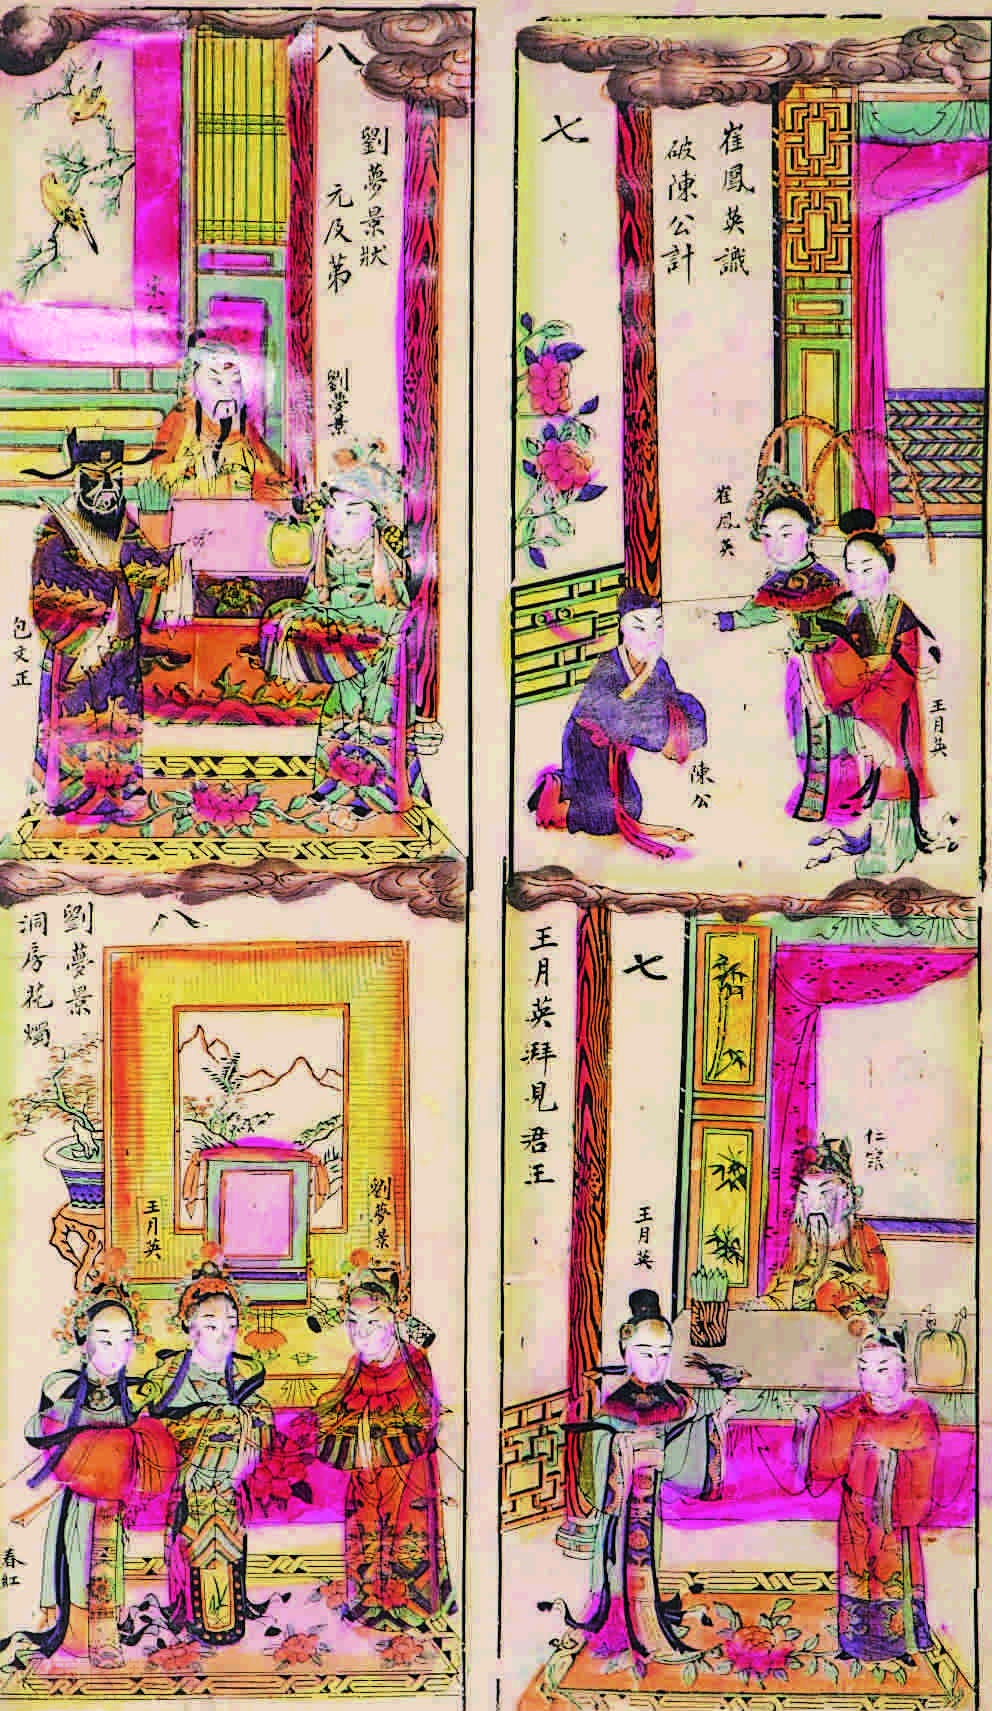 七
崔鳳英識
破陳公計
崔鳳英
王月英
陳公
七
王月英拜見君王
仁宗
王月英
八
劉夢景狀
元及第
劉夢景
包文正
八
劉夢景
洞房花燭
劉夢景
王月英
春紅